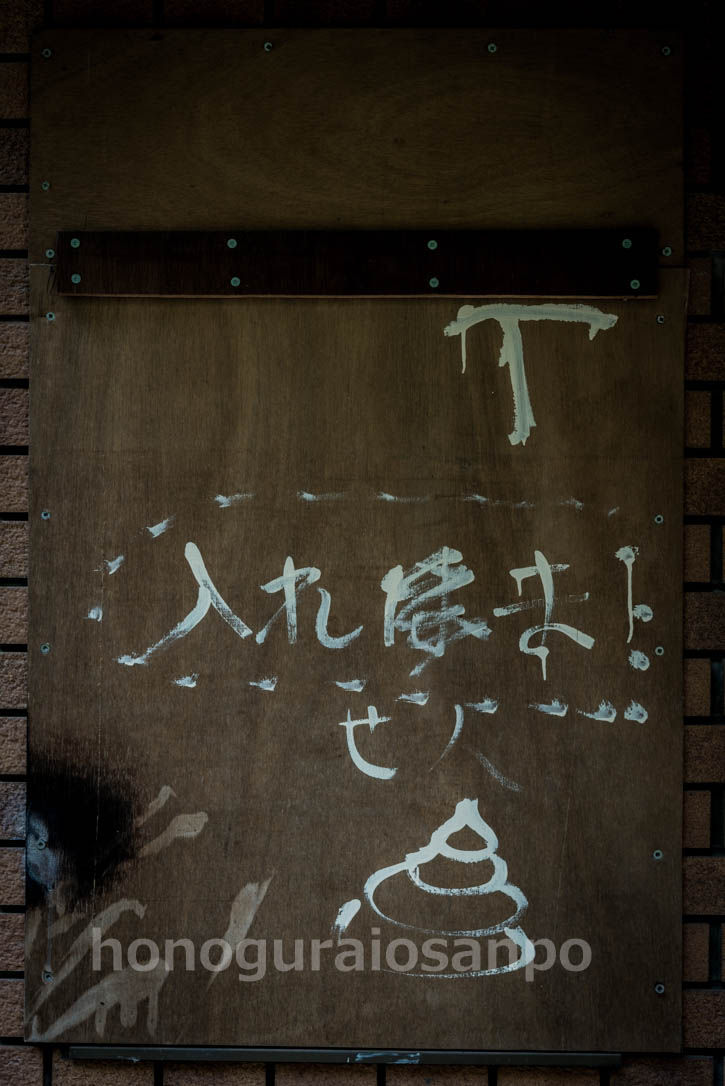 T
入れま!
せ人
honoguraiosanpo